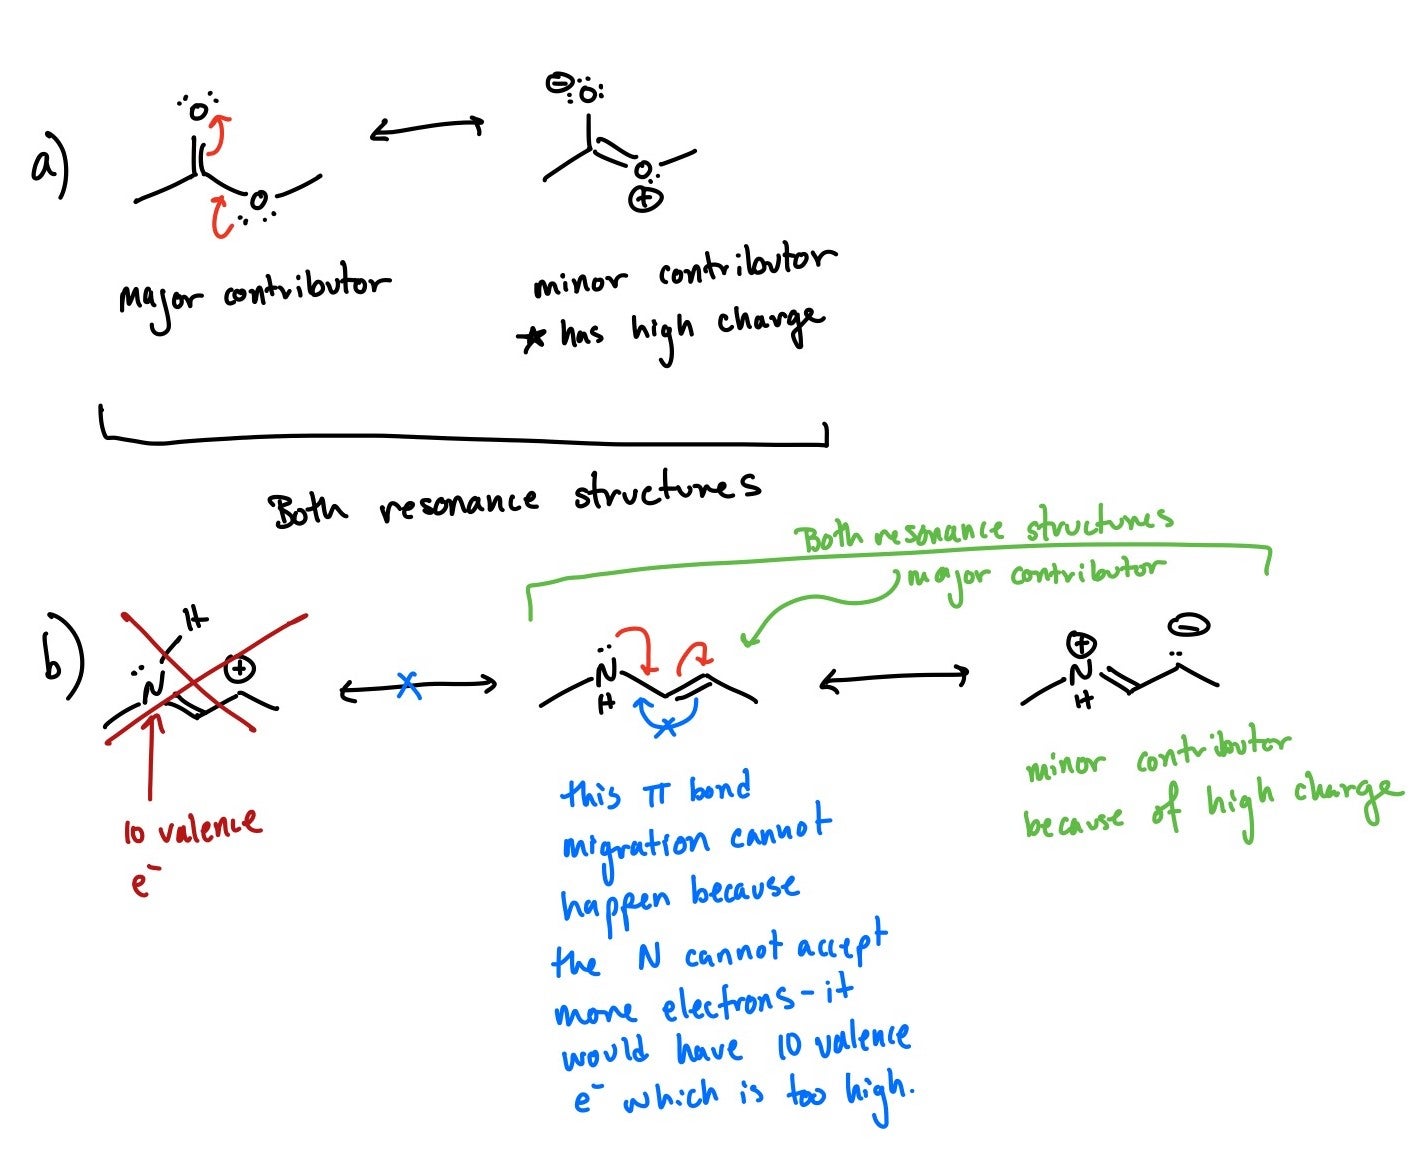 a)
O
O
⊖
O
O
⊕
major contributor
minor contributor
★ has high charge
Both resonance structures
Both resonance structures
major contributor
b)
H
N
⊕
N
H
⊕
N
H
⊖
10 valence
e⁻
this π bond
migration cannot
happen because
the N cannot accept
more electrons - it
would have 10 valence
e⁻ which is too high.
minor contributor
because of high charge